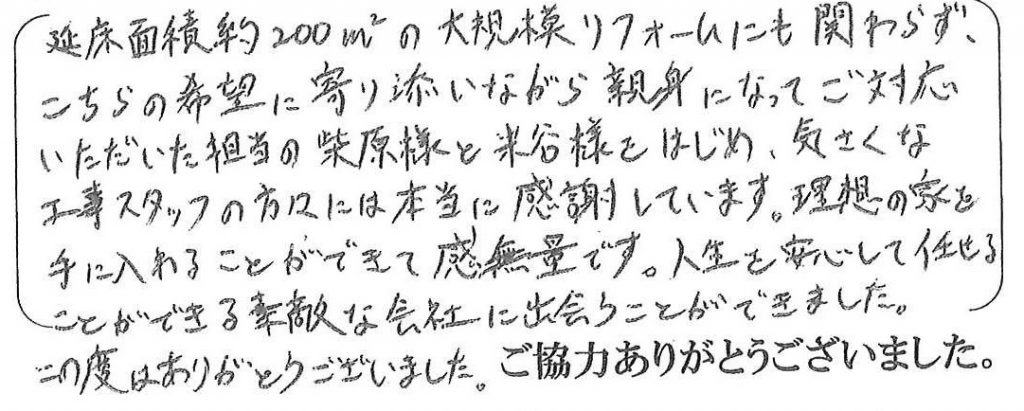 延床面積約200m²の大規模リフォームにも関わらず、
こちらの希望に寄り添いながら親身になってご対応
いただいた担当の柴原様と米谷様をはじめ、気さくな
工事スタッフの方々には本当に感謝しています。理想の家を
手に入れることができて感無量です。人生を安心して任せる
ことができる素敵な会社に出会うことができました。
この度はありがとうございました。ご協力ありがとうございました。